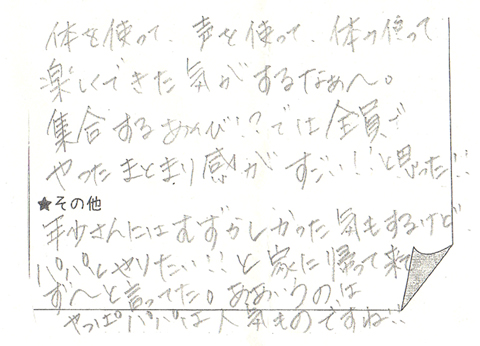 体を使って、声を使って、体の使って
楽しくできた気がするなぁ〜。
集合するあそび!?では全員で
やったまとまり感がすごい!!と思った!!
★その他
年少さんにはむずかしかった気もするけど
パパとやりたい!!と家に帰って来て
ず〜と言ってた。ああいうのは
やっぱパパは人気ものですね!!